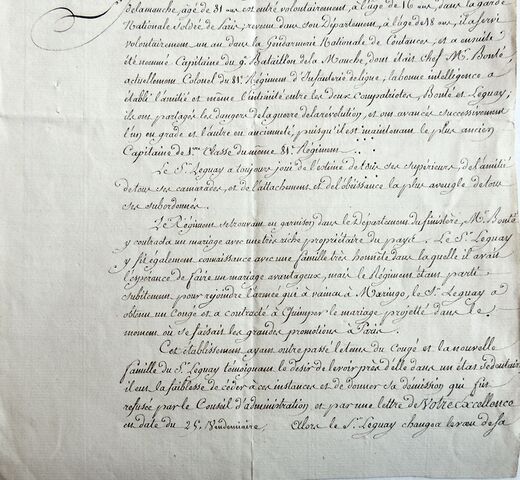 delamanche, âgé de 31 ans est entré volontairement, à l'âge de 16 ans, dans la garde
Nationale Soldée de Paris; revenu dans son Département, à l'age de 18 ans, il a servi
volontairement un an dans la Gendarmerie Nationale de Coutances, et a ensuite
été nommé Capitaine du 9e. Bataillon de la Manche, dont était Chef Mr. Bonté,
actuellement Colonel du 81e. Régiment d'Infanterie de ligne; la bonne intelligence a
établi l'amitié et même l'intimité entre les deux compatriotes, Bonté et Leguay;
ils ont partagé les dangers de la guerre de la révolution, et ont avancés successivement
l'un en grade et l'autre en ancienneté, puisqu'il est maintenant le plus ancien
Capitaine de 1ere. Classe du même 81e. Régiment
Le Sr. Leguay a toujours joui de l'estime de tous ses supérieurs, de l'amitié
de tous ses camarades, et de l'attachement et de l'obéissance la plus aveugle de tous
ses subordonnés.
Le Régiment se trouvant en garnison dans le Département du finistère, Mr. Bonté
y contracta un mariage avec une très riche propriétaire du pays. Le Sr. Leguay
y fit également connaissance avec une famille très honnête dans laquelle il avait
l'espérance de faire un mariage avantageux, mais le Régiment étant parti
subitement pour rejoindre l'armée qui a vaincu à Maringo, le Sr. Leguay a
obtenu un Congé et a contracté à Quimper le mariage projetté dans le
moment où se faisait les grandes promotions à Paris.
Cet établissement ayant outre passé le tems du Congé et la nouvelle
famille du Sr. Leguay témoignant le desir de le voir près d'elle dans un état Sédentaire
il eut la faiblesse de céder à ces instances et de donner sa démission qui fut
refusée par le Conseil d'administration et par une lettre de Votre Excellence
en date du 25 Vendemiaire Alors le Sr. Leguay changea le vœu de sa